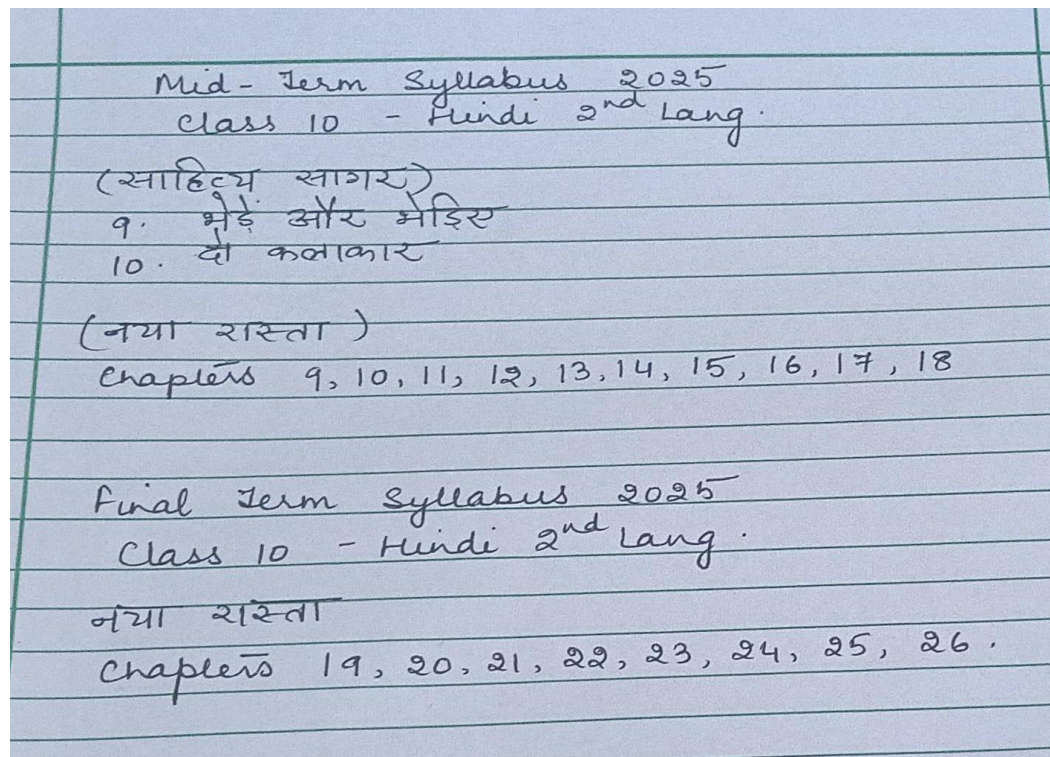 Mid-Term Syllabus 2025
Class 10 - Hindi 2nd Lang.
(साहित्य सागर)
9. भेड़ें और भेड़िए
10. दो कलाकार
(नया रास्ता)
Chapters 9, 10, 11, 12, 13, 14, 15, 16, 17, 18
Final Term Syllabus 2025
Class 10 - Hindi 2nd Lang.
नया रास्ता
Chapters 19, 20, 21, 22, 23, 24, 25, 26.